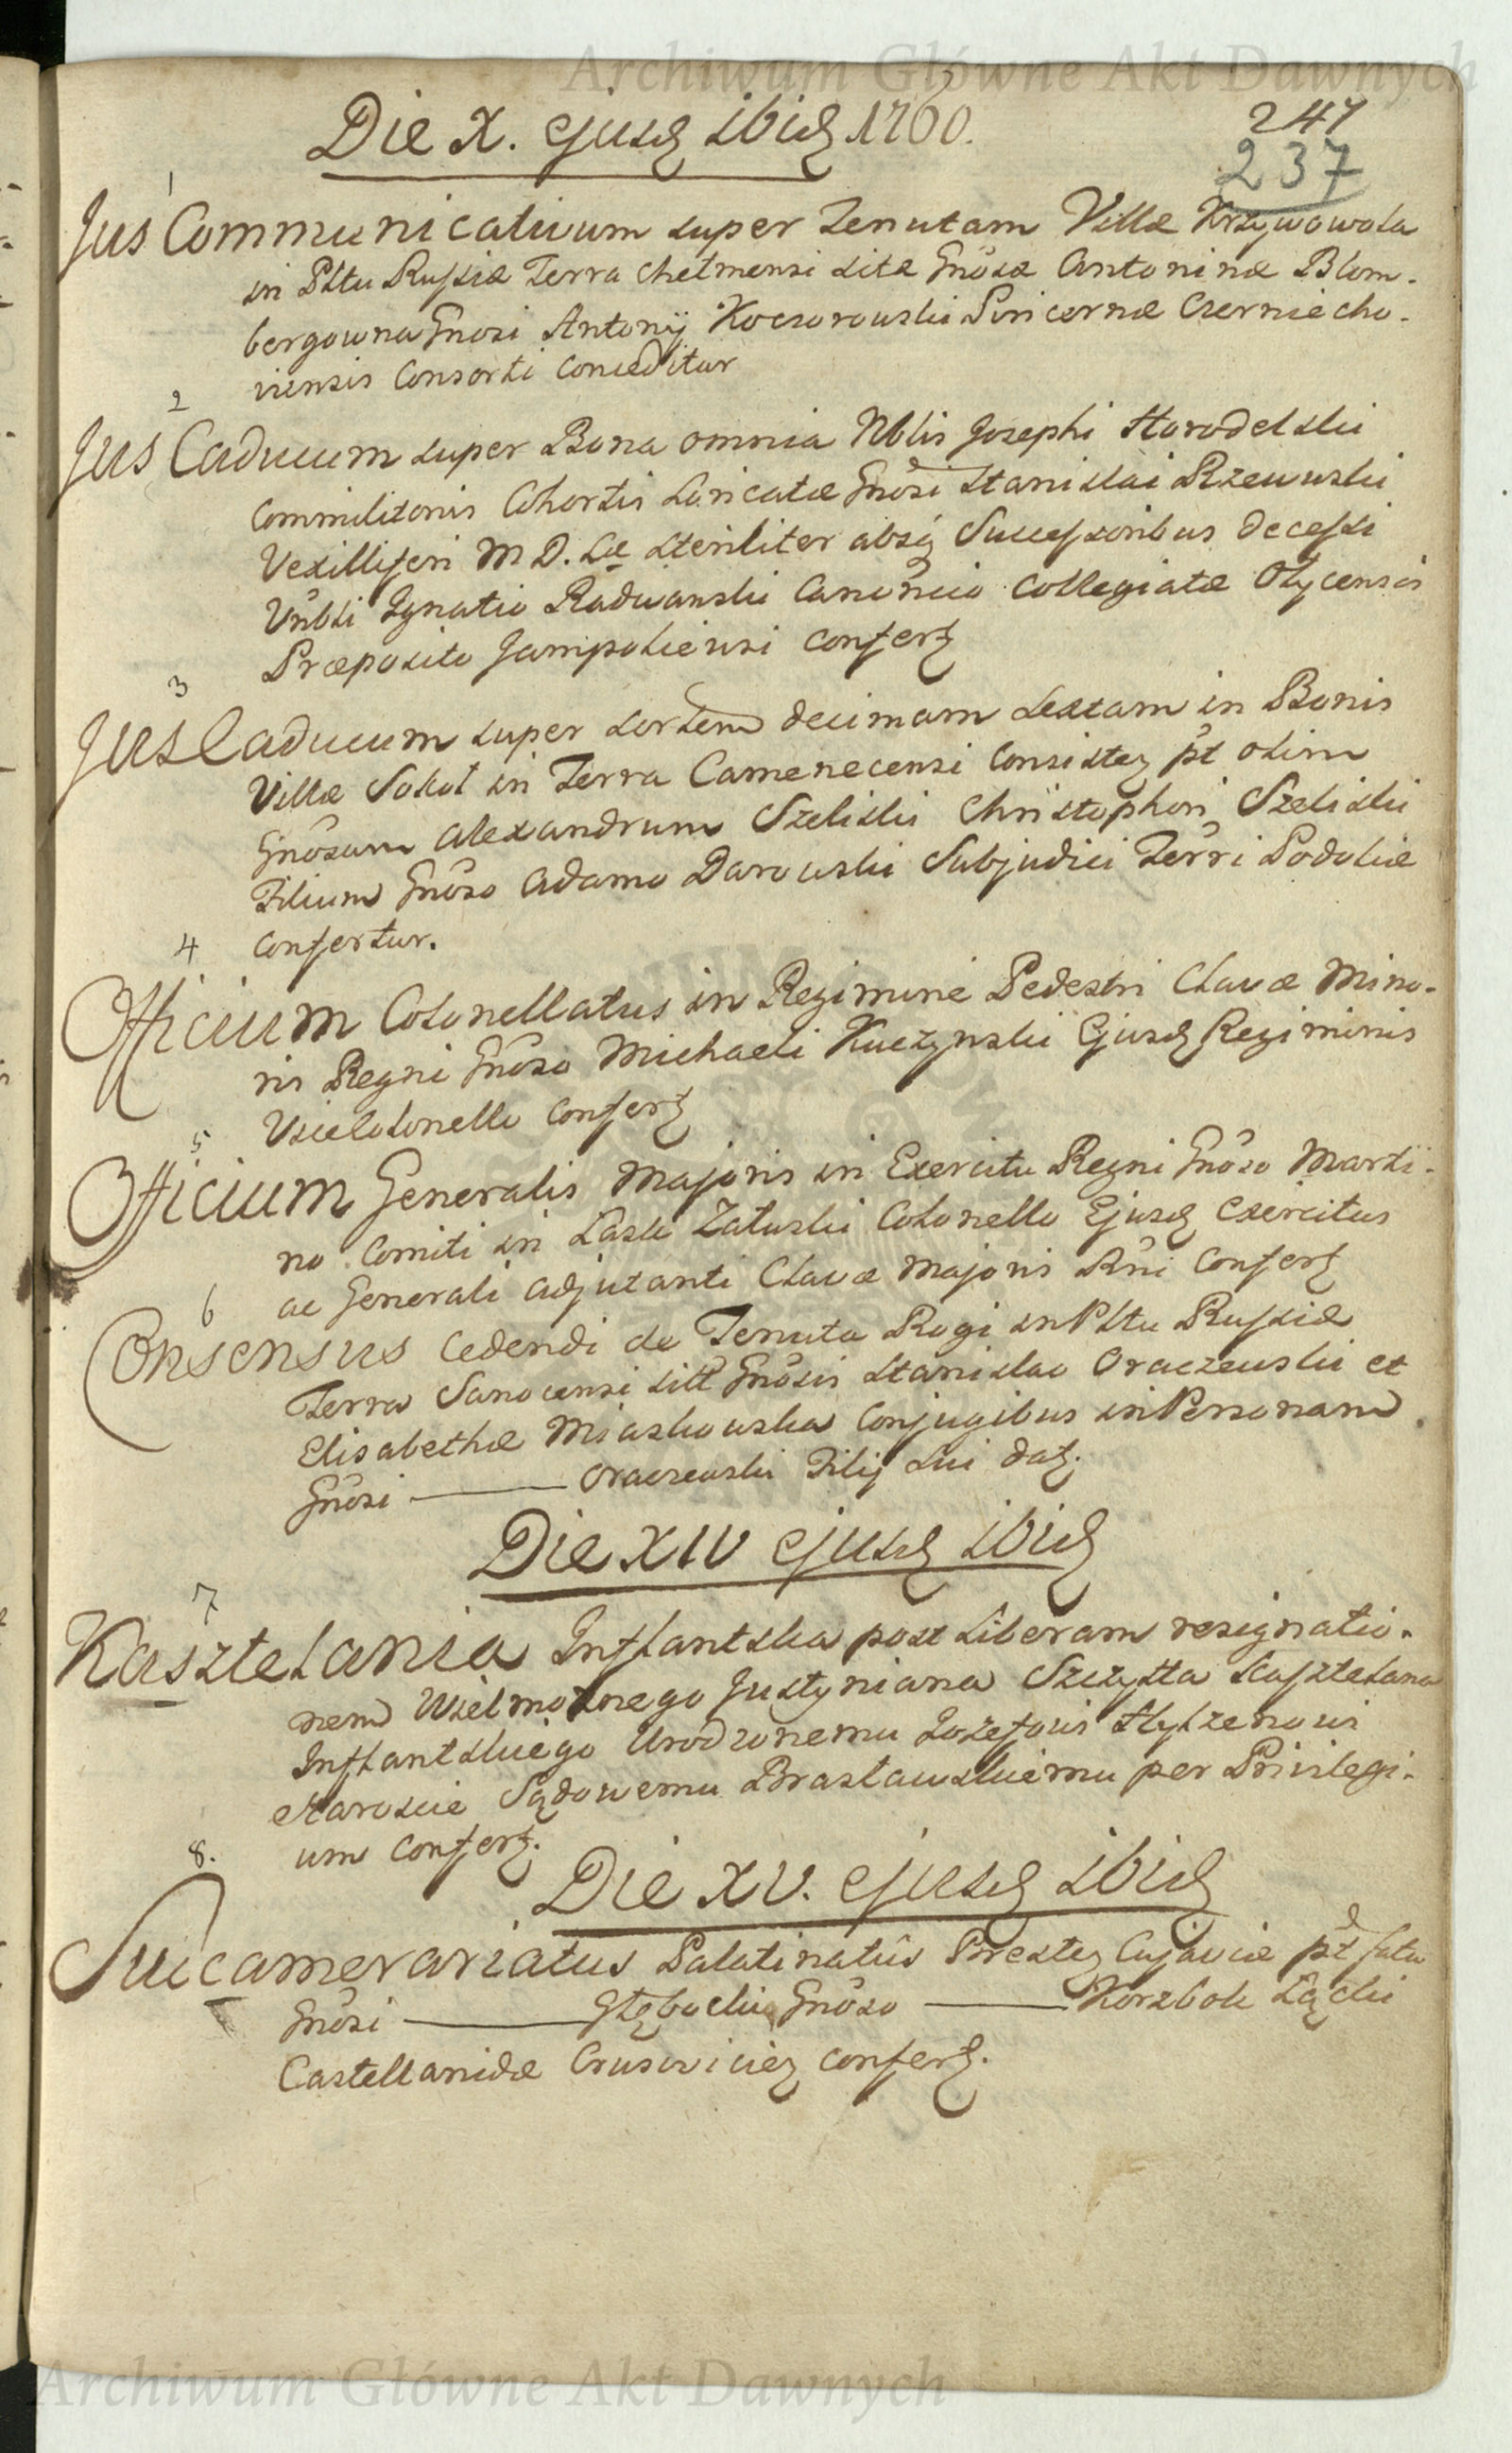 Archiwum Główne Akt Dawnych
Die X. ejusd ibid 1760.
247
237
1
Jus Communicativum super Tenutam Villæ Krzywowola
in Pltu Russiæ Terra Chelmensi sitæ Gnosæ Antoninæ Blom-
bergowna Gnosi Antonij Koczorowski Pincernæ Czerniecho-
viensis Consorti Conceditur
2
Jus Caducum super Bona omnia Nblis Josephi Horodelski
Commilitonis Cohortis Loricatæ Gnosi Stanislai Rzewuski
Vexilliferi M D. Læ steriliter absq Successoribus decessi
Vnbli Ignatio Radwanski Canonico Collegiatæ Olycensis
Præposito Jampoliensi confert
3
Jus Caducum super sortem decimam sextam in Bonis
Villæ Sokol in Terra Camenecensi Consisten pt olim
Gnosum Alexandrum Szeliski Christophori Szeliski
Filium Gnoso Adamo Darowski Subjudici Terri Podoliæ
Confertur.
4
Officium Colonellatus in Regimine Pedestri Clavæ Mino-
ris Regni Gnoso Michaeli Kuczynski Ejusd Regiminis
Vicecolonello Confert
5
Officium Generalis Majoris in Exercitu Regni Gnoso Marti-
no Comiti in Łask Załuski Colonello Ejusd Exercitus
ac Generali Adjutanti Clavæ Majoris Rni Confert
6
Consensus Cedendi de Tenuta Rogi in Pltu Russiæ
Terra Sanocensi sitt Gnosis Stanislao Oraczewski et
Elisabethæ Miaskowska Conjugibus in Personam
Gnosi ——— Oraczewski Filij sui dat.
Die XIV ejusd ibid
7
Kasztelania Inflantska post Liberam resignatio-
nem Wielmożnego Justyniana Szczytta Kasztelana
Inflantskiego Urodzonemu Jozefowi Hylzenowi
staroscie Sądowemu Brasławskiemu per Privilegi-
um Confert.
8.
Die XV. ejusd ibid
Succamerariatus Palatinatûs Bresten Cujaviæ pt fata
Gnosi ——— Głębocki Gnoso ——— Korzbok Łącki
Castellanidæ Crusvicien confert.
Archiwum Główne Akt Dawnych